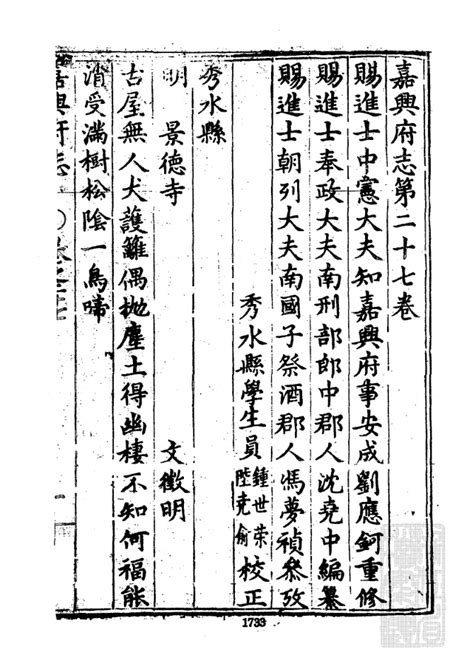 嘉興府志第二十七卷
賜進士中憲大夫知嘉興府事安成劉應鈳重修
賜進士奉政大夫南刑部郎中郡人沈堯中編纂
賜進士朝列大夫南國子祭酒郡人馮夢禎叅攷
秀水縣學生員鍾世荣陸堯俞校正
秀水縣
明 景德寺 文徵明
古屋無人犬護籬偶拋塵土得幽棲不知何福能
消受滿樹松陰一鳥啼
嘉興府志 卷之二十七 一
1733